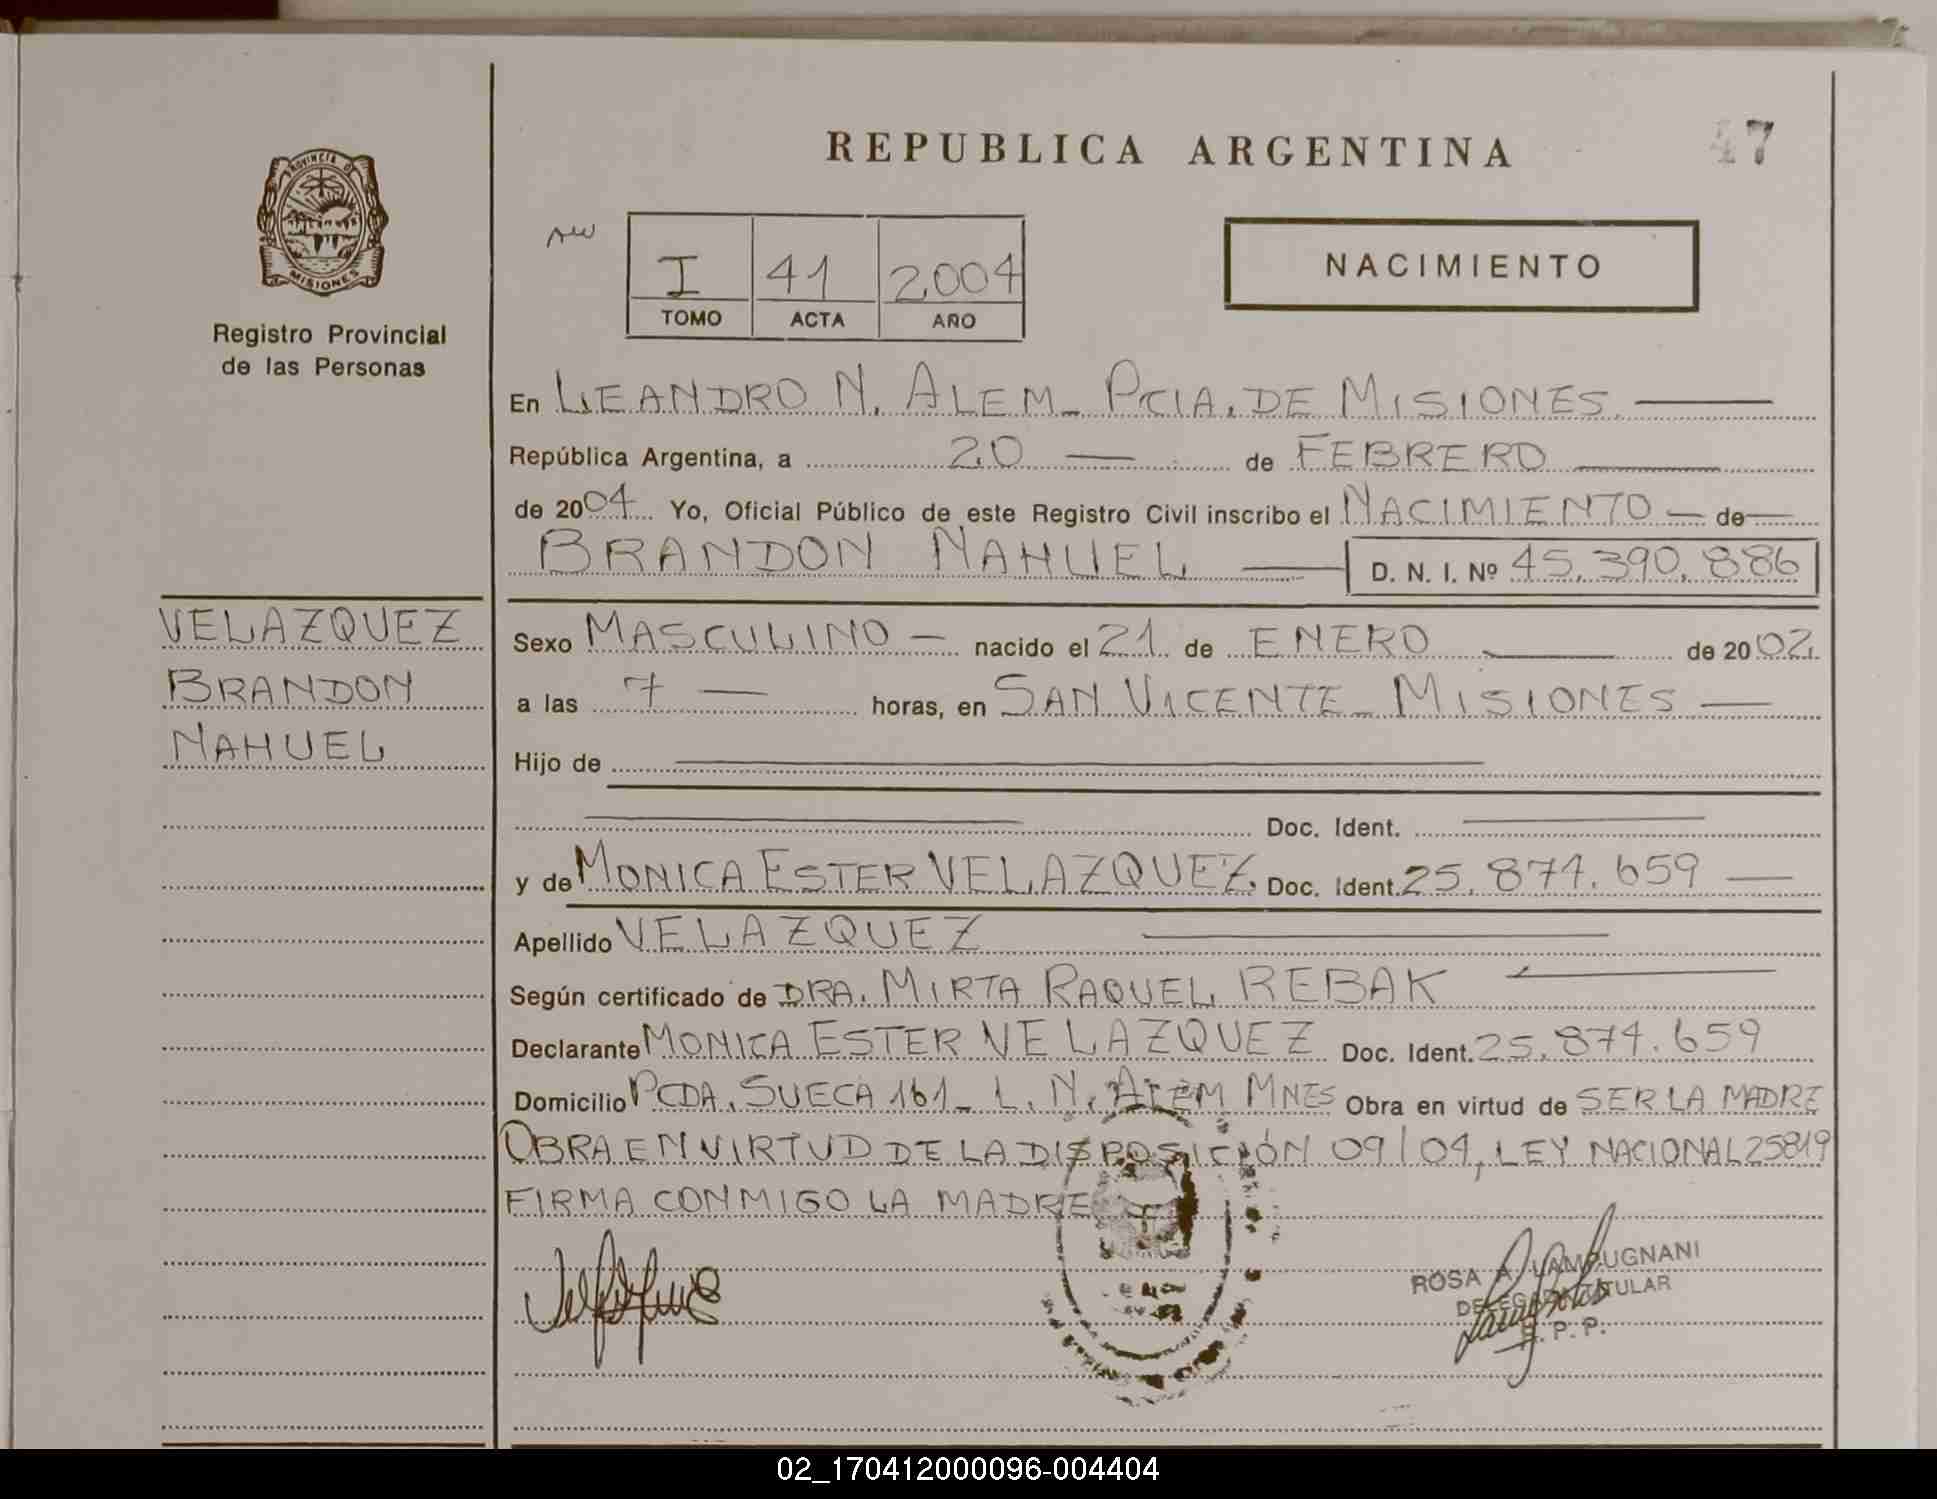 REPUBLICA ARGENTINA
47
PROVINCIA D
MISIONES
Registro Provincial
de las Personas
I 41 2004
TOMO ACTA AÑO
NACIMIENTO
En LEANDRO N. ALEM - PCIA. DE MISIONES
República Argentina, a 20 de FEBRERO
de 2004 Yo, Oficial Público de este Registro Civil inscribo el NACIMIENTO de
BRANDON NAHUEL D. N. I. Nº 45.390.886
VELAZQUEZ
BRANDON
NAHUEL
Sexo MASCULINO nacido el 21 de ENERO de 2002
a las 7 horas, en SAN VICENTE - MISIONES
Hijo de
Doc. Ident.
y de MONICA ESTER VELAZQUEZ Doc. Ident. 25.874.659
Apellido VELAZQUEZ
Según certificado de DRA. MIRTA RAQUEL REBAK
Declarante MONICA ESTER VELAZQUEZ Doc. Ident. 25.874.659
Domicilio PCDA. SUECA 161 - L. N. ALEM MNES Obra en virtud de SER LA MADRE
OBRA EN VIRTUD DE LA DISPOSICIÓN 09/04, LEY NACIONAL 25819
FIRMA CONMIGO LA MADRE
ROSA A. LAMPUGNANI
DELEGADA TITULAR
R. P. P.
02_170412000096-004404